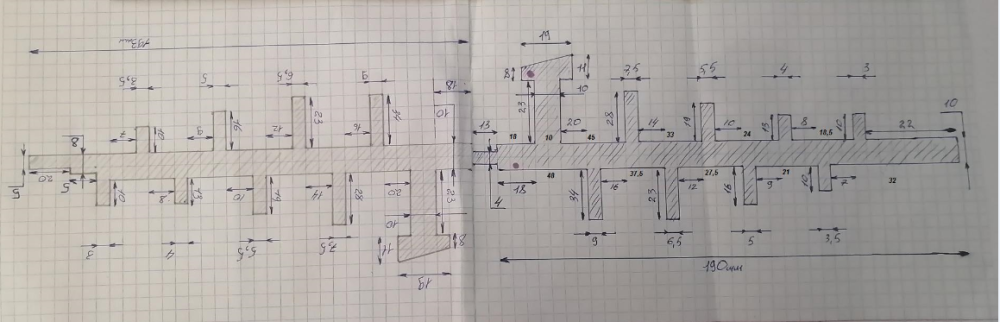 3,5 5 6,5 9 18
10 16 23 34 10
7 9 12 16
8
5 20 5
10 8 13 10 19 14 28 20 23
10
3 4 5,5 7,5 11 8
19
19 7,5 5,5 4 3
8 11 10
23 28 19 13 10 10
13 18 10 20 45 14 33 10 24 8 18,5 22
4 18 48 34 16 37,5 23 12 27,5 16 9 21 10 7 32
9 6,5 5 3,5
190мм